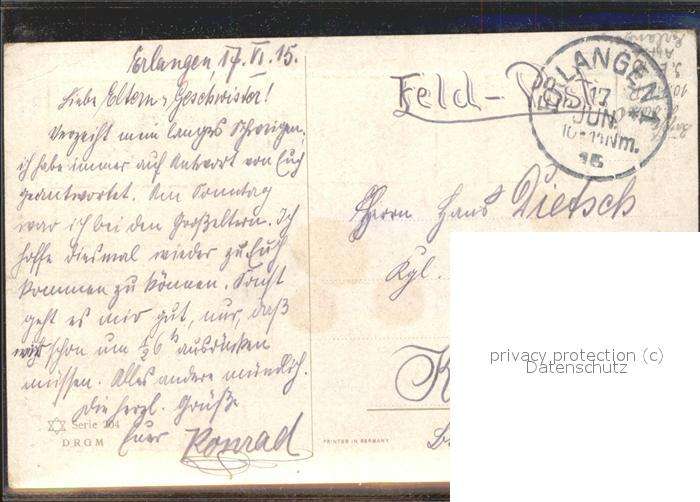 Erlangen, 17. VI. 15.
Liebe Eltern u. Geschwister!
Verzeiht mein langes Schweigen,
ich habe immer auf Antwort von Euch
geantwortet. Am Sonntag
war ich bei den Großeltern. Ich
hoffe diesmal wieder zu Euch
kommen zu können. Sonst
geht es mir gut, nur, daß
wir schon um ½6 h ausrücken
müssen. Alles andere mündlich.
Die herzl. Grüße
Euer Konrad
Serie 204
D R G M
PRINTED IN GERMANY
Feld-Post
ERLANGEN 1
17
JUN.
10-11 Nm.
15
Herrn Hans Dietsch
Kgl.
privacy protection (c)
Datenschutz